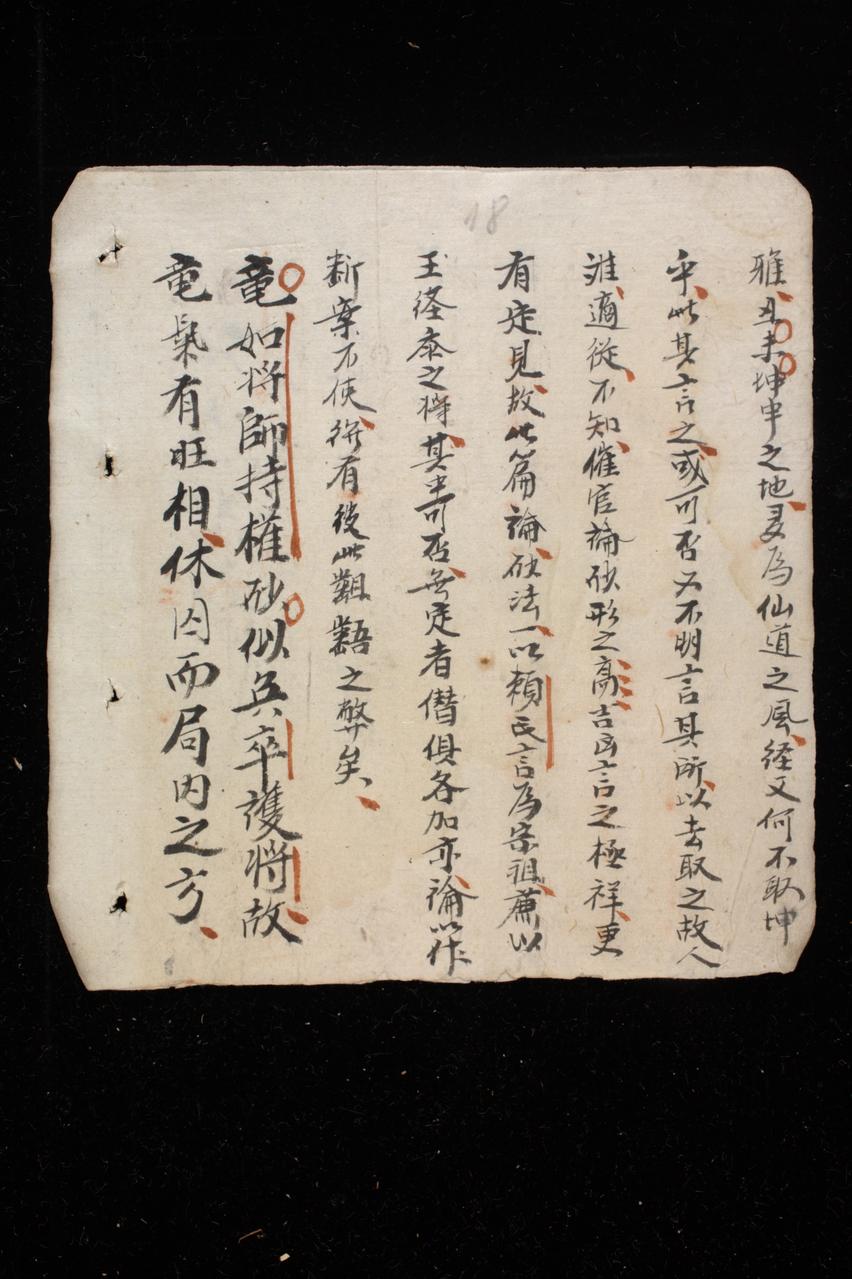 雅丑未坤申之地叐為仙道之風経又何不取坤
乎此其言之或可否又不明言其所以去取之故人
難適従不知催官論砂形之高吉凶言之極祥更
有定見故此篇論砂法一以頼氏言為宗祖薦以
玉経
之
其
可否無定者僭俱各加亦論以作
断案不使
有後此齟齬之弊矣
竜如将師持権砂似兵卒護将故
竜氣有旺相休囚而局内之方
18